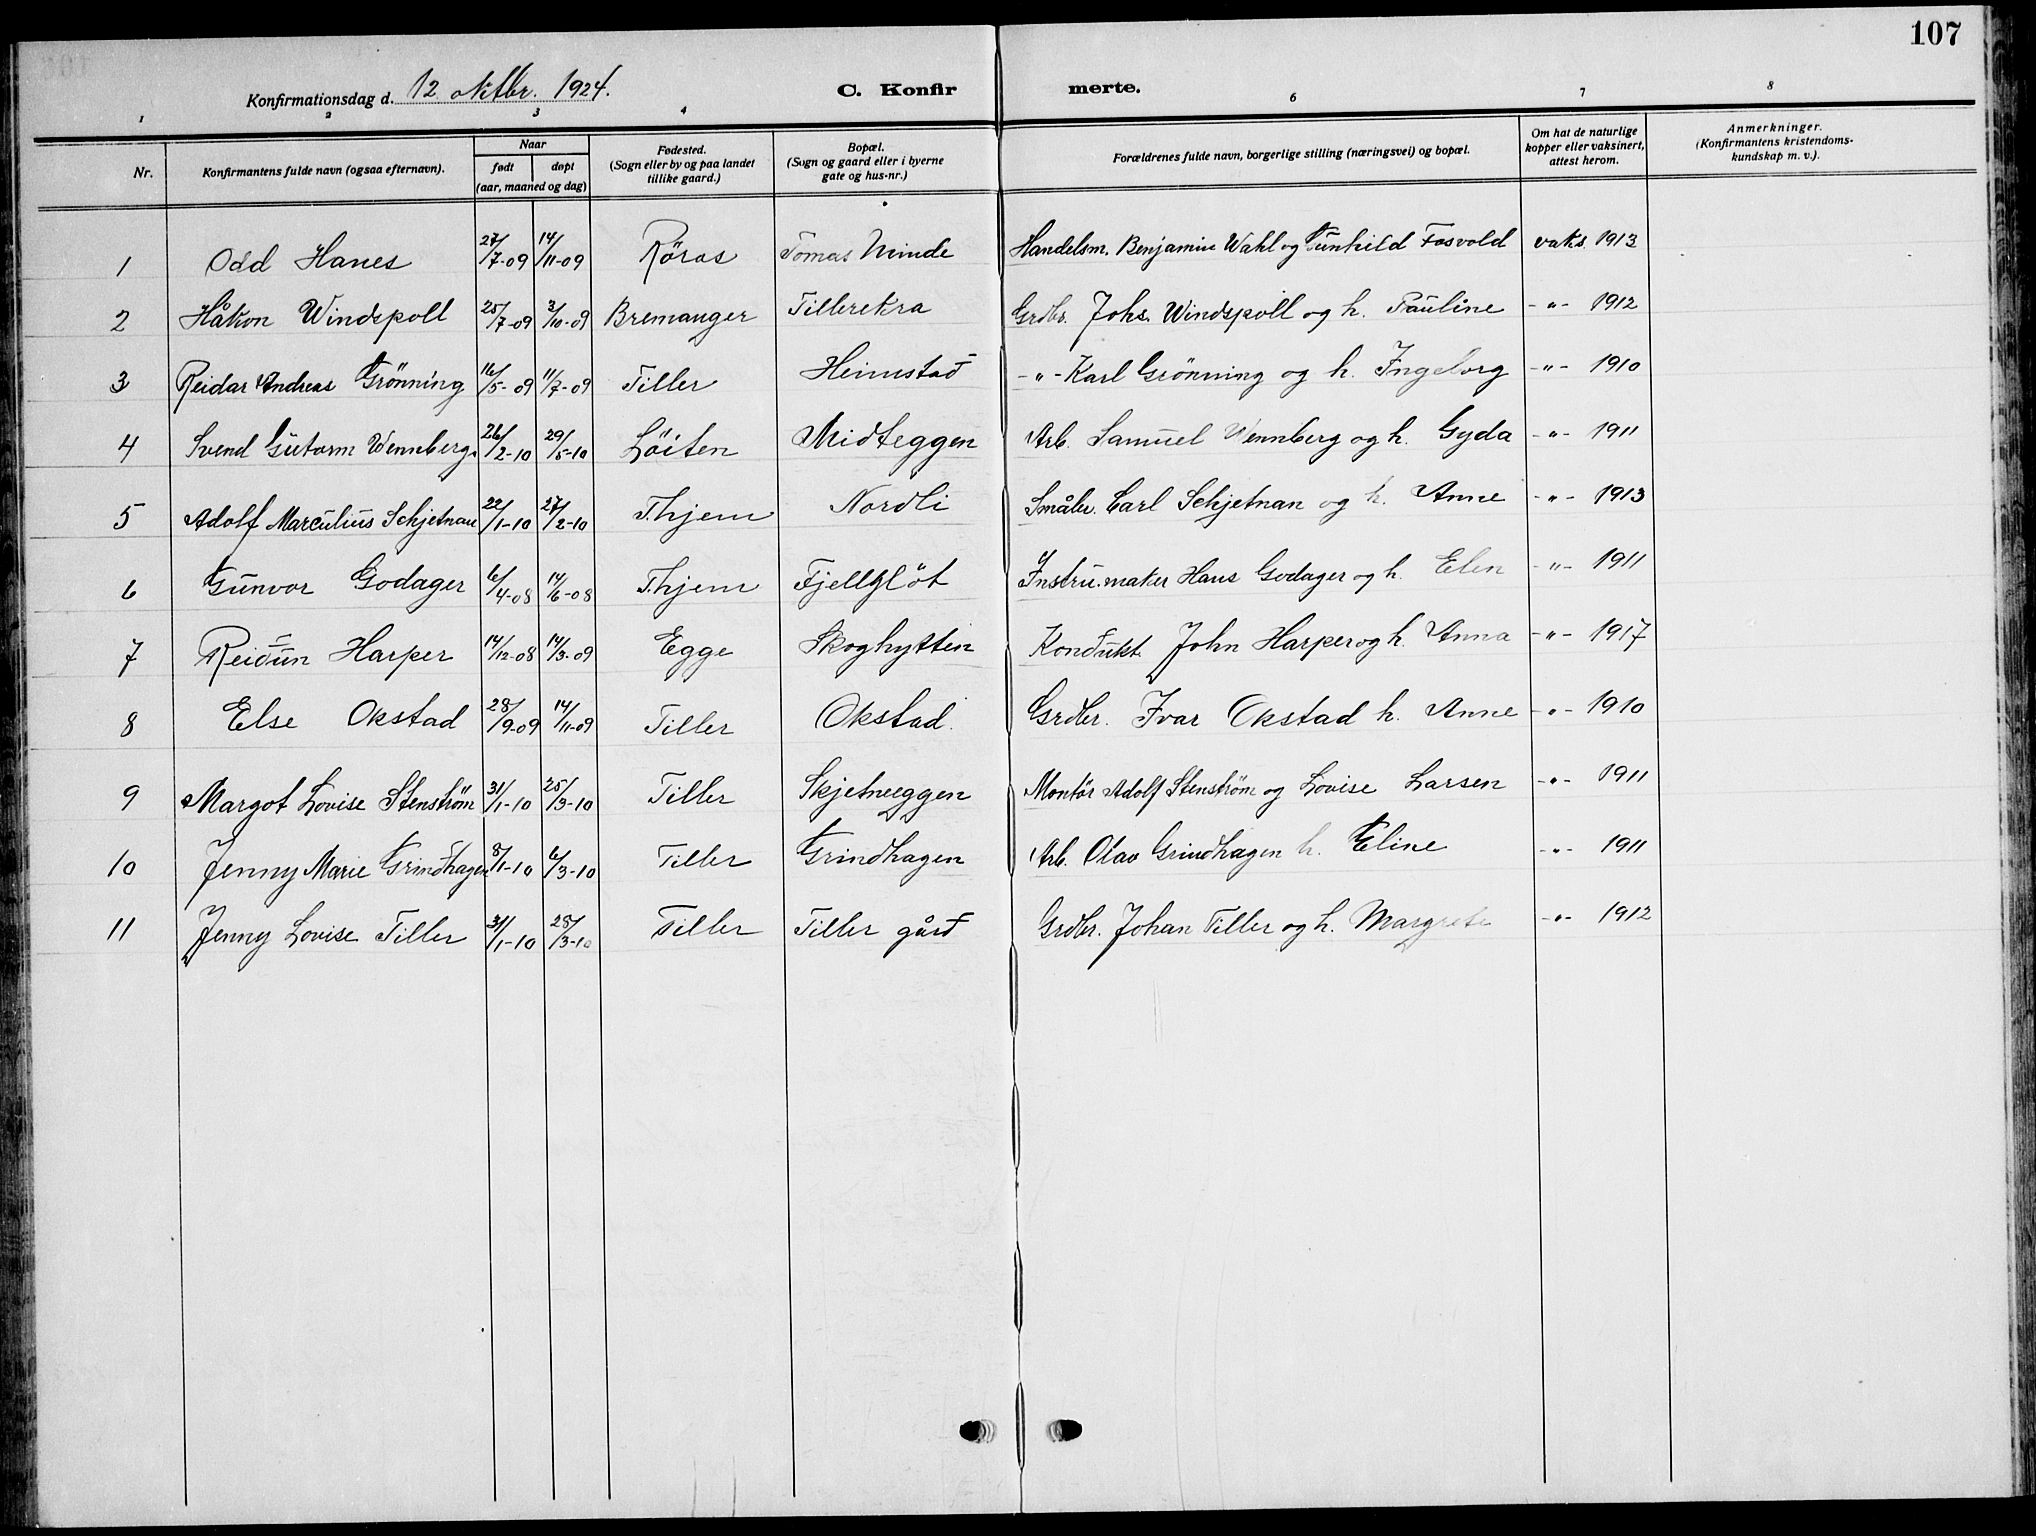 107
Konfirmationsdag d. 12 oktbr. 1924. C. Konfirmerte.
1 2 3 4 6 7 8
Nr. Konfirmantens fulde navn (ogsaa efternavn). Naar født døpt (aar, maaned og dag) Fødested. (Sogn eller by og paa landet tillike gaard.) Bopæl. (Sogn og gaard eller i byerne gate og hus-nr.) Forældrenes fulde navn, borgerlige stilling (næringsvei) og bopæl. Om hat de naturlige kopper eller vaksinert, attest herom. Anmerkninger. (Konfirmantens kristendoms-kundskap m. v.).
1 Odd Hanes 27/7-09 14/11-09 Röros Tomas Minde Handelsm. Benjamin Wahl og Gunhild Fosvold vaks. 1913
2 Håkon Windspoll 25/7-09 3/10-09 Bremanger Tillerekra Grdbr. Johs. Windspoll og h. Pauline -"- 1912
3 Reidar Andreas Grönning 16/5-09 11/7-09 Tiller Heimstad -"- Karl Grönning og h. Ingeborg -"- 1910
4 Svend Gutorm Wennberg. 26/2-10 29/5-10 Löiten Midteggen Arb. Samuel Wennberg og h. Gyda -"- 1911
5 Adolf Marculius Schjetnan 22/1-10 27/2-10 T.hjem Nordli Småbr. Carl Schjetnan og h. Anne -"- 1913
6 Gunvor Godager 6/4-08 14/6-08 T.hjem Fjellglöt Instru.maker Hans Godager og h. Elen -"- 1911
7 Reidun Harper 14/12-08 14/3-09 Egge Skoghytten Kondukt. John Harper og h. Anna -"- 1917
8 Else Okstad 28/9-09 14/11-09 Tiller Okstad. Grdbr. Ivar Okstad h. Anne -"- 1910
9 Margot Lovise Stenström 31/1-10 25/3-10 Tiller Skjetneeggen Montör Adolf Stenström og Lovise Larsen -"- 1911
10 Jenny Marie Grindhagen 8/1-10 6/3-10 Tiller Grindhagen Arb. Olav Grindhagen h. Eline -"- 1911
11 Jenny Lovise Tiller 31/1-10 28/3-10 Tiller Tiller gård Grdbr. Johan Tiller og h. Margrete -"- 1912